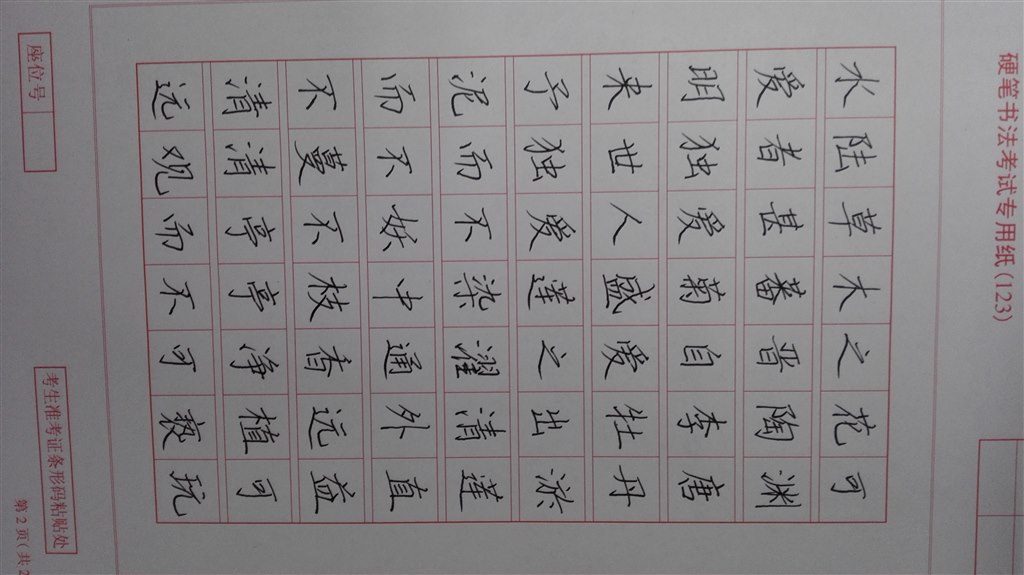 硬笔书法考试专用纸(123)
水陆草木之花可
爱者甚蕃晋陶渊
明独爱菊自李唐
来世人盛爱牡丹
予独爱莲之出淤
泥而不染濯清莲
而不妖中通外直
不蔓不枝香远益
清清亭亭净植可
远观而不可亵玩
座位号
考生准考证条形码粘贴处
第2页(共2